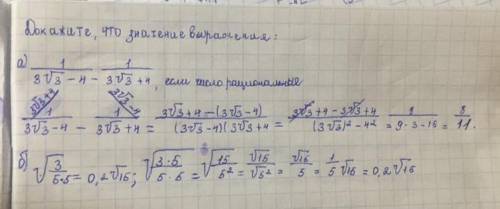 Докажите, что значение выражения:
а) 1/(3√3-4) - 1/(3√3+4), есть число рациональное
1/(3√3-4) - 1/(3√3+4) = (3√3+4-(3√3-4))/((3√3-4)(3√3+4)) = (3√3+4-3√3+4)/((3√3)²-4²) = 8/(9·3-16) = 8/11.
б) √(3/(5·5)) = 0,2√15; √((3·5)/(5·5)) = √(15/5²) = √15/√5² = √15/5 = 1/5 √15 = 0,2√15